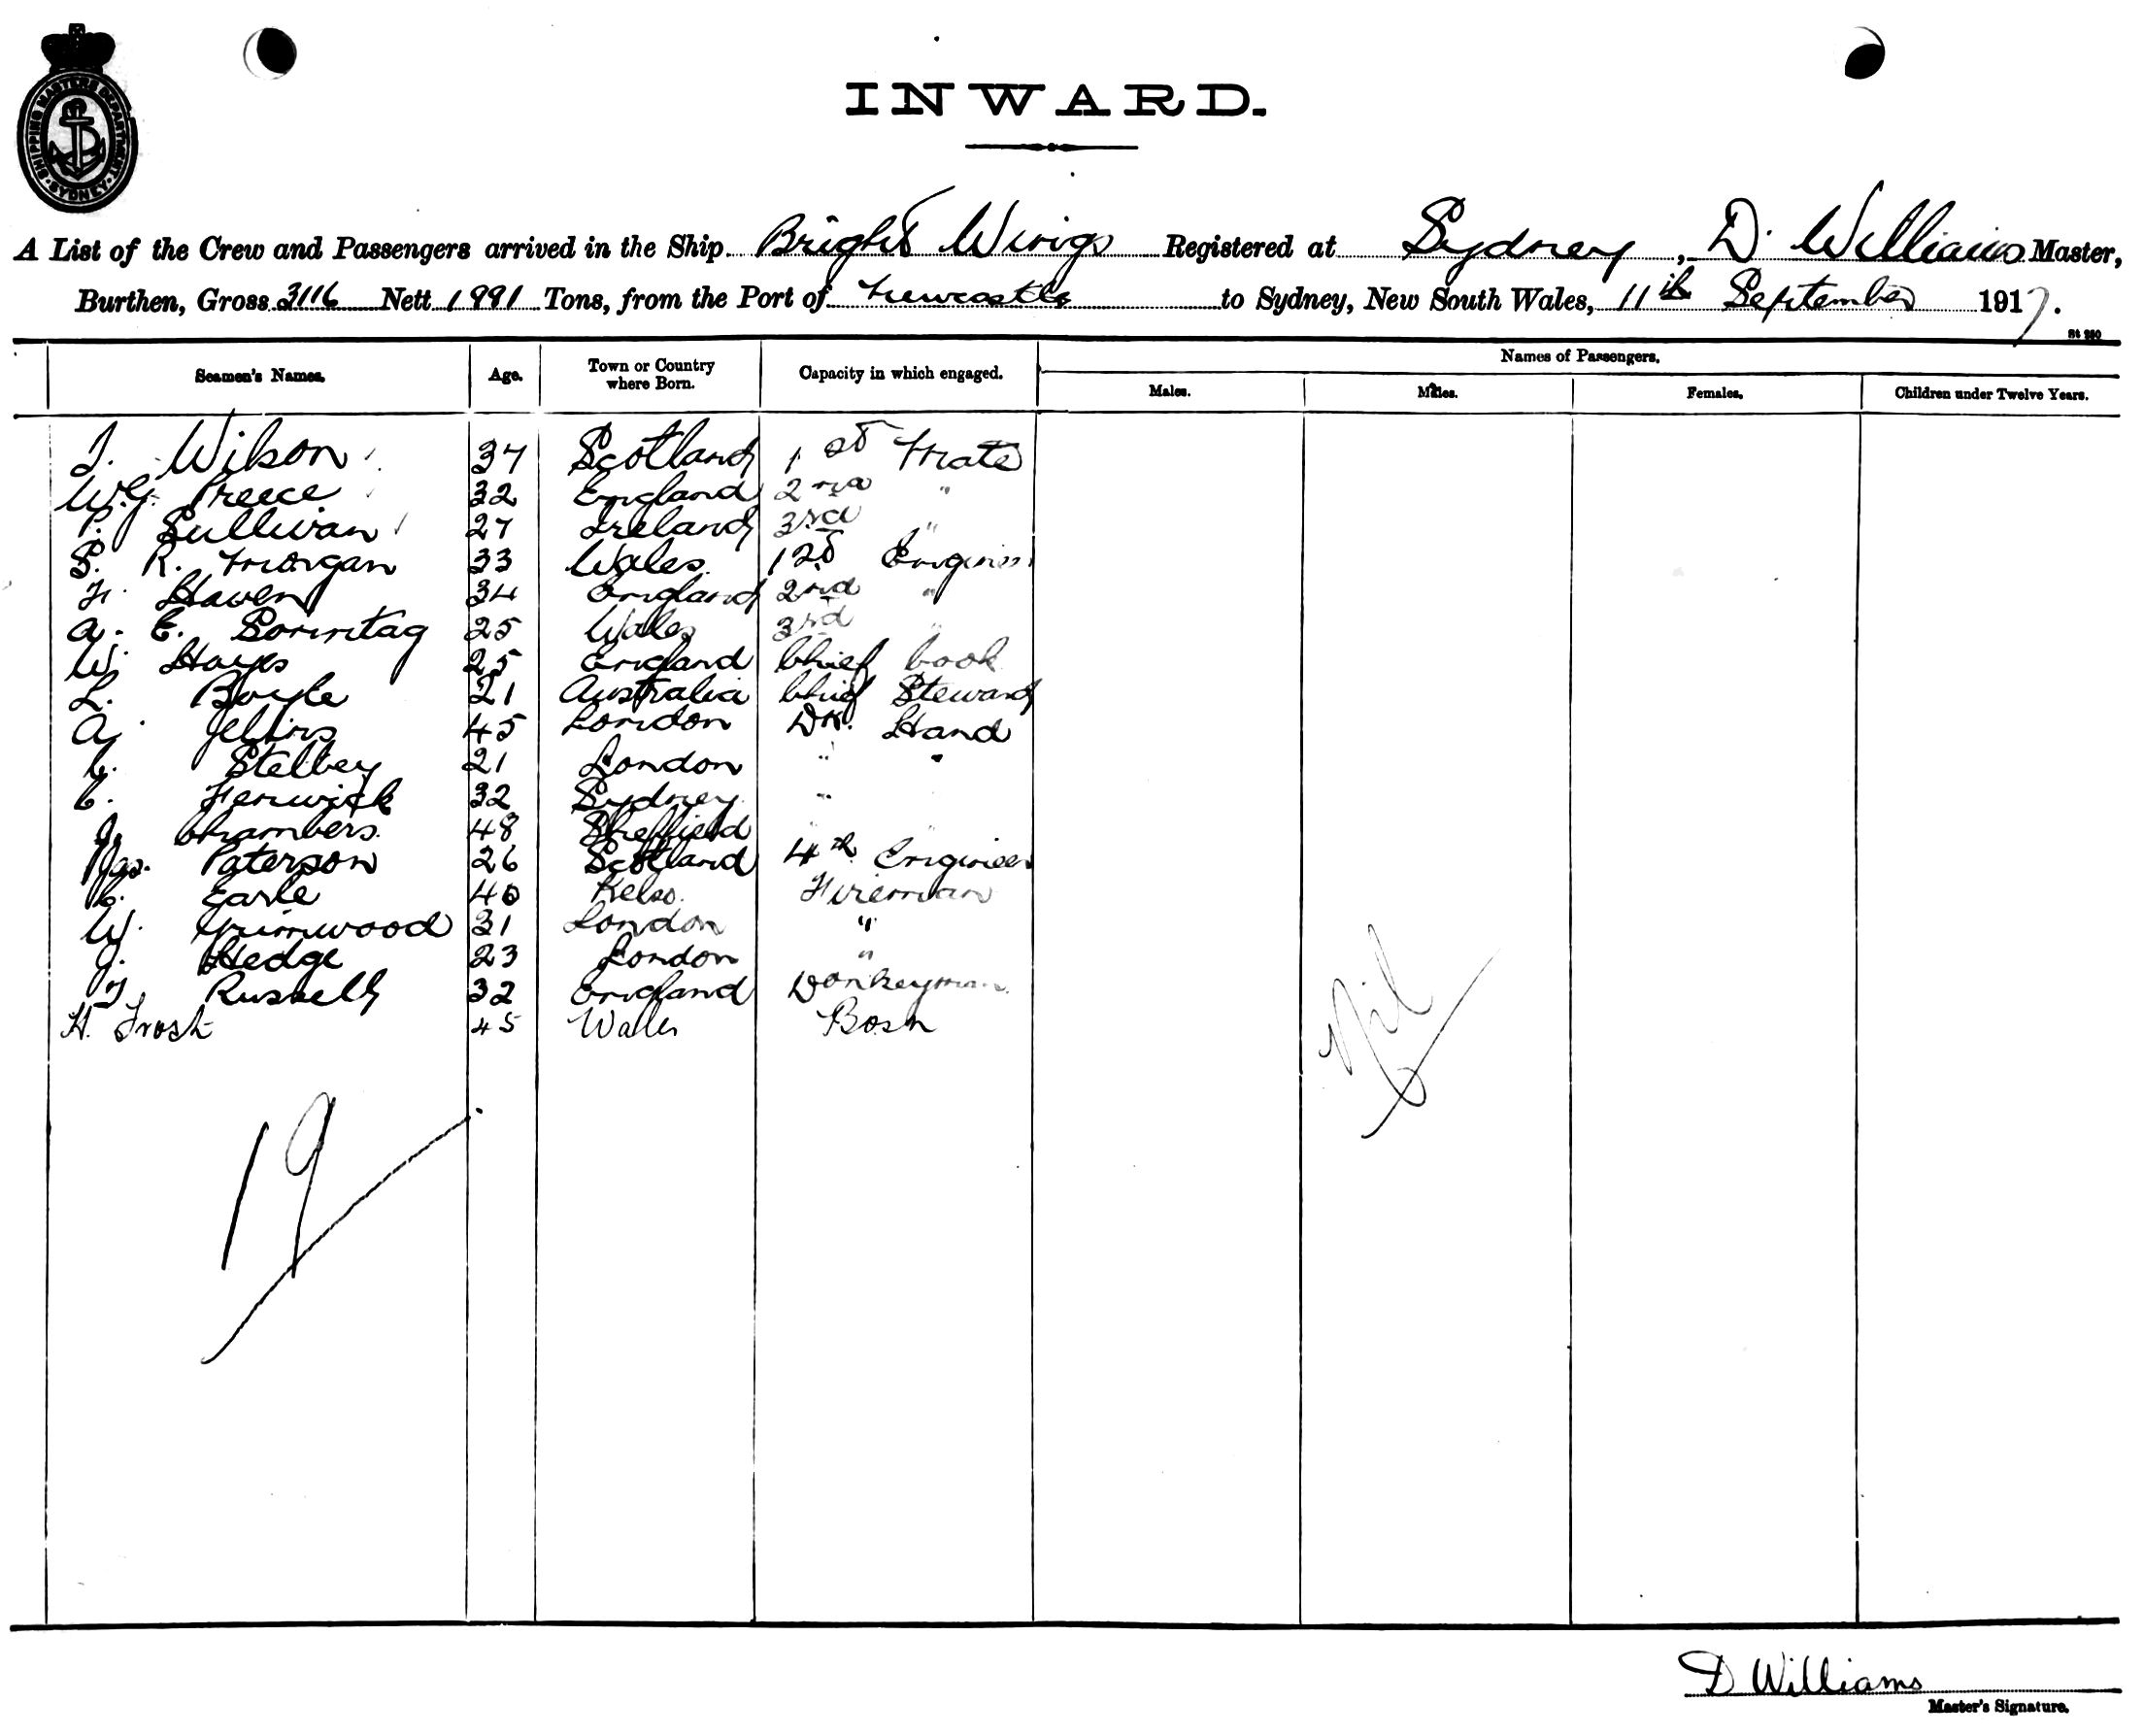 SHIPPING MASTERS DEPARTMENT SYDNEY
INWARD.
A List of the Crew and Passengers arrived in the Ship Bright Wings Registered at Sydney, D. Williams Master,
Burthen, Gross 3116 Nett 1991 Tons, from the Port of Newcastle to Sydney, New South Wales, 11th September 1917.
Names of Passengers.
Seamen's Names. Age. Town or Country where Born. Capacity in which engaged. Males. Males. Females. Children under Twelve Years.
J. Wilson 37 Scotland 1st Mate
W.G. Preece 32 England 2nd "
P. Sullivan 27 Ireland 3rd "
S. R. Morgan 33 Wales 1st Engineer
F. Haven 34 England 2nd "
A. E. Sonntag 25 Wales 3rd "
W. Hayes 25 England Chief Cook
L. Boyle 21 Australia Chief Steward
A. 45 London Dk. Hand
C. Stelbey 21 London " "
C. Fenwick 32 Sydney "
J. Chambers. 48 Sheffield " "
Jas. Paterson 26 Scotland 4th Engineer
C. Earle 40 Kelso. Fireman
W. Grimwood 31 London "
J. Hedge 23 London "
J. Russell 32 England Donkeyman
H. Frost 45 Wales Bosn
Nil
19
D Williams
Master's Signature.